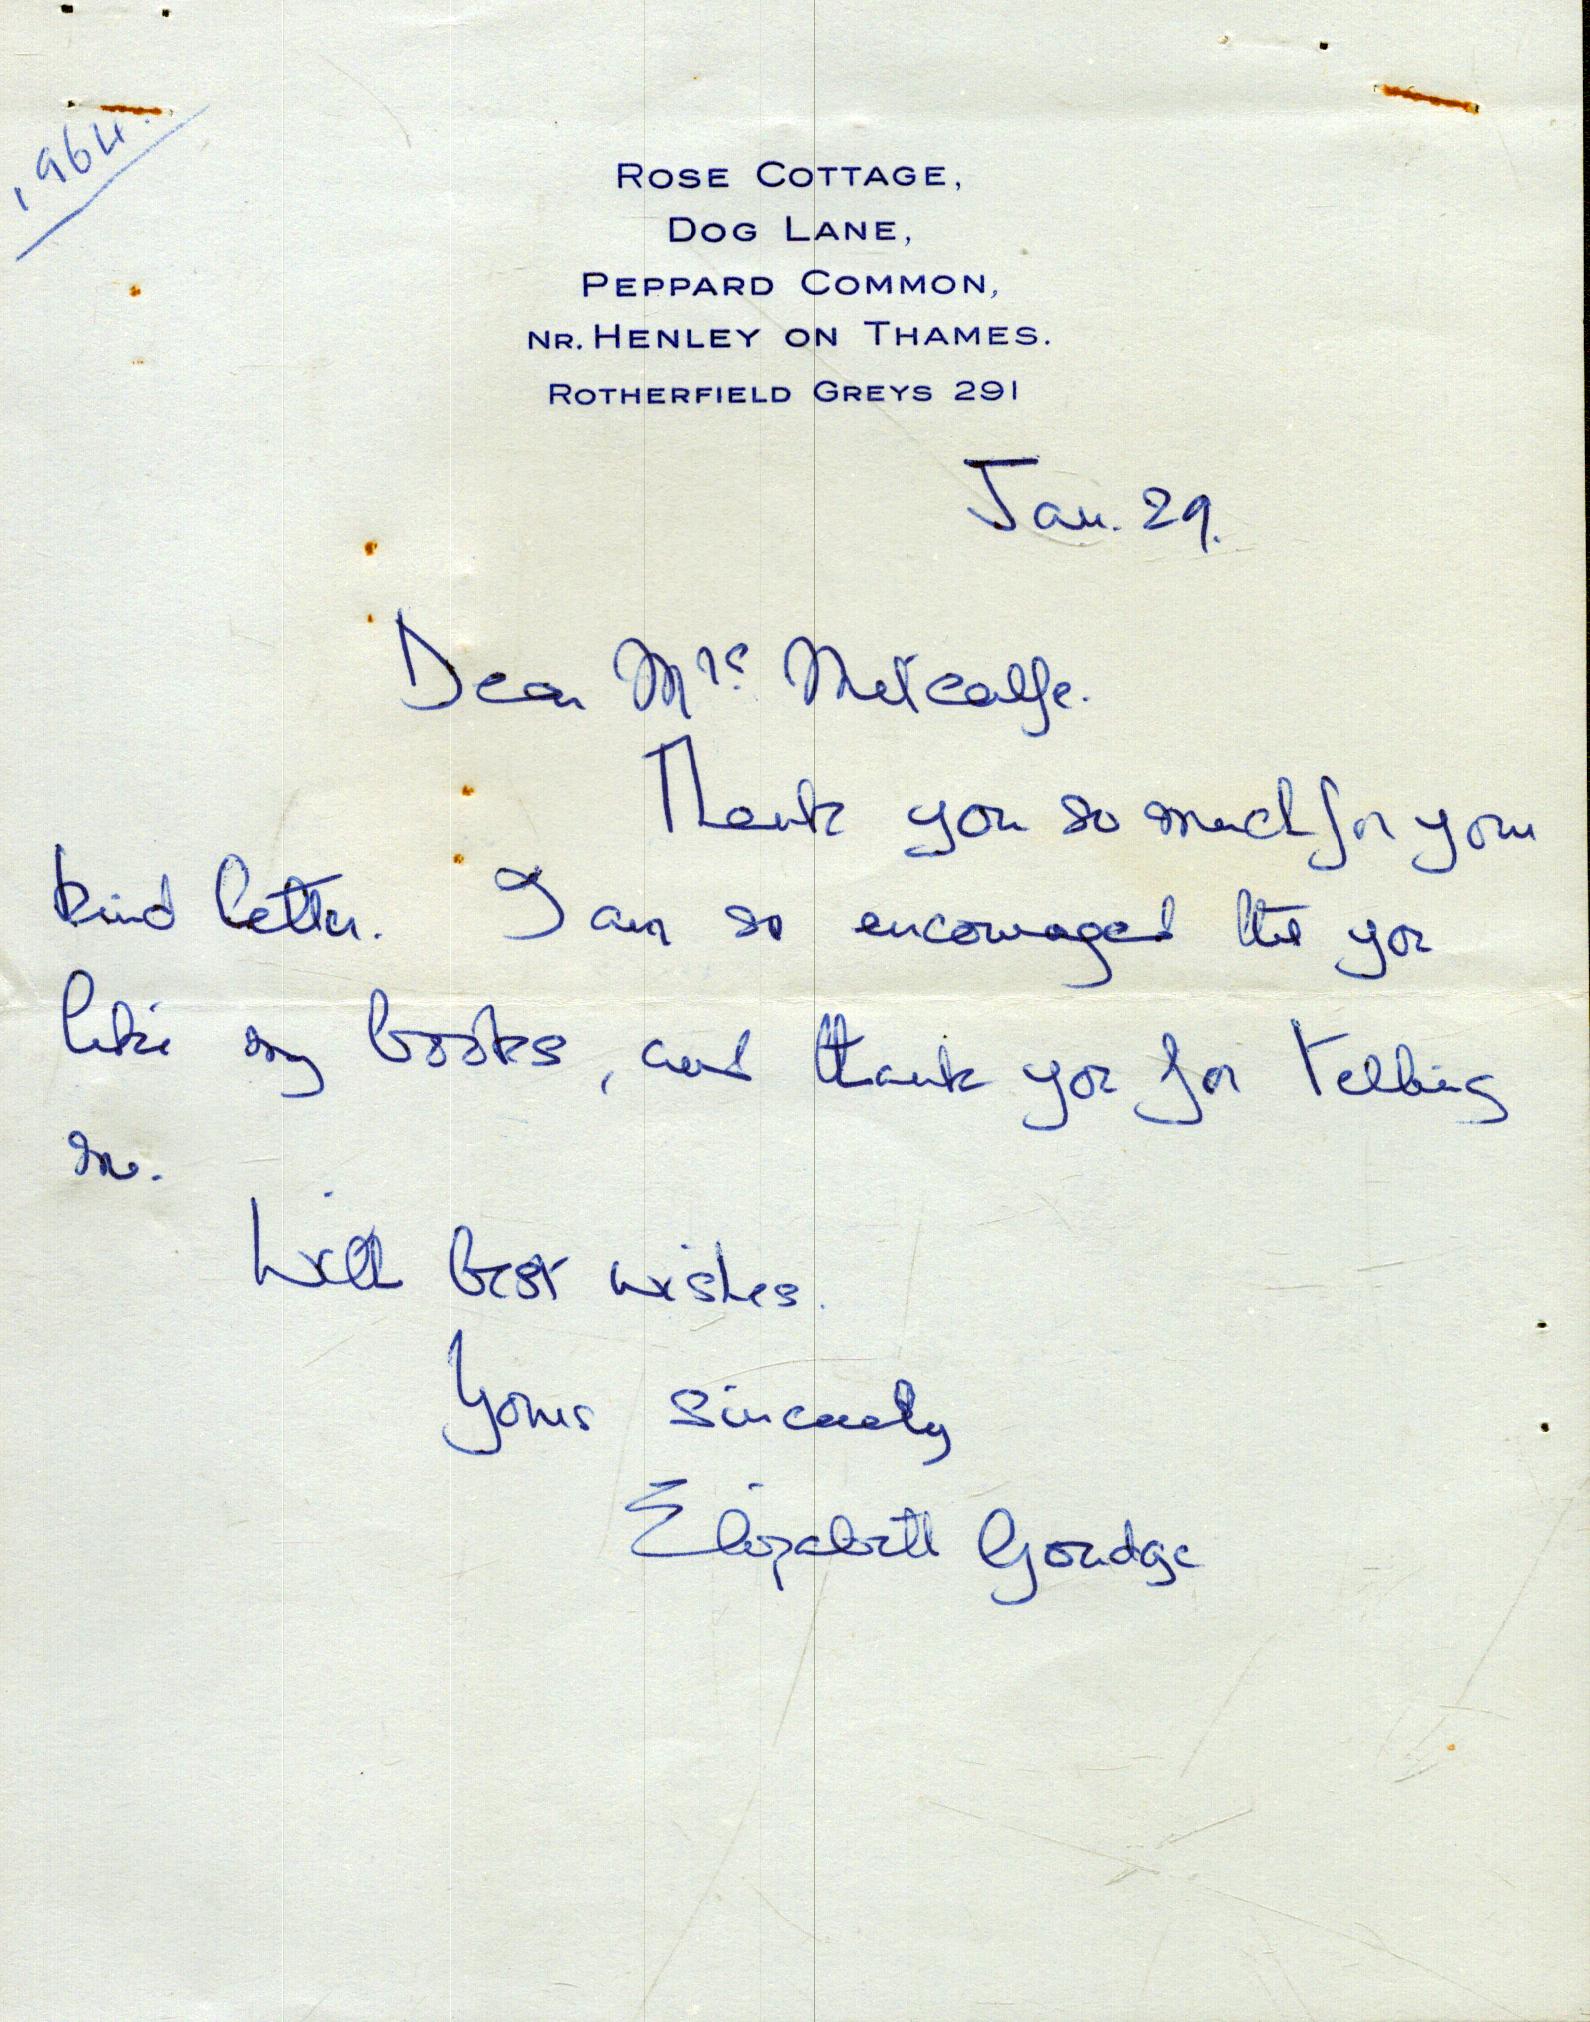 1964.
ROSE COTTAGE,
DOG LANE,
PEPPARD COMMON,
NR. HENLEY ON THAMES.
ROTHERFIELD GREYS 291
Jan. 29.
Dear Mrs. Metcalfe.
Thank you so much for your
kind letter. I am so encouraged that you
like my books, and thank you for telling
me.
With best wishes.
Yours sincerely
Elizabeth Goudge